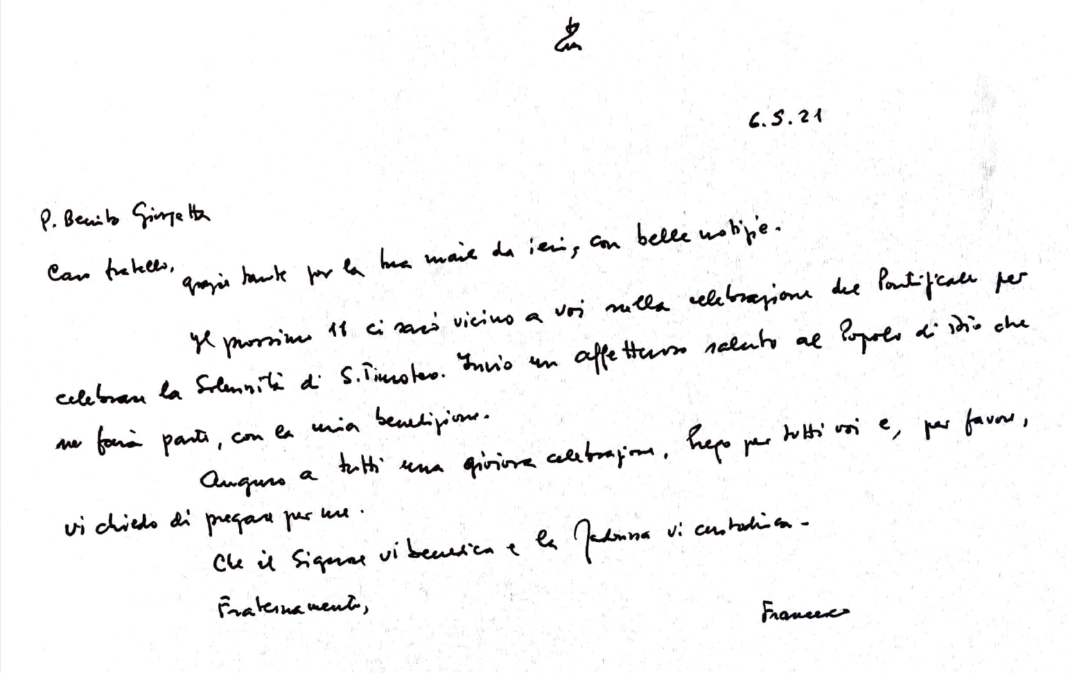 6.5.21
P. Benito Giorgetta
Caro fratello,
grazie tante per la tua mail da ieri, con belle notizie.
Il prossimo 11 ci sarò vicino a voi nella celebrazione del Pontificale per
celebrare la Solennità di S. Timoteo. Invio un affettuoso saluto al Popolo di Dio che
ne farà parte, con la mia benedizione.
Auguro a tutti una gioiosa celebrazione. Prego per tutti voi e, per favore,
vi chiedo di pregare per me.
Che il Signore vi benedica e la Madonna vi custodisca.
Fraternamente,
Francesco